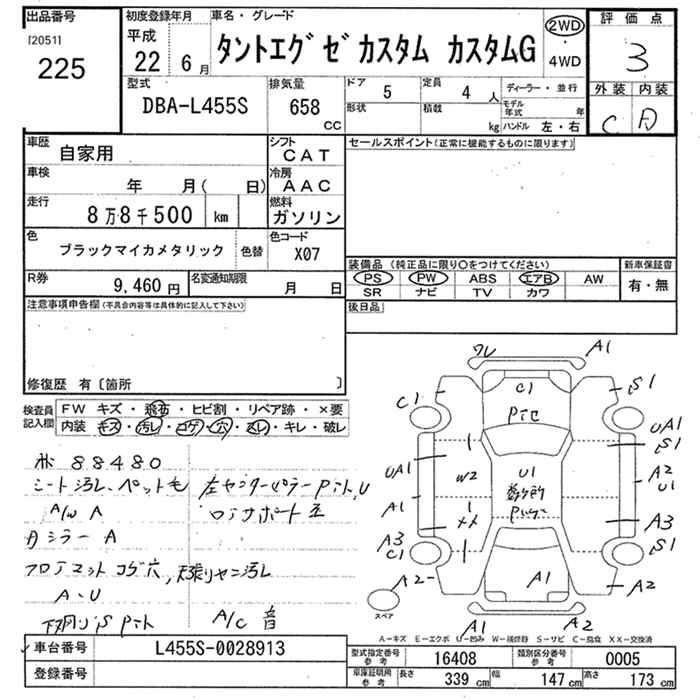 出品番号
[2051]
225
初度登録年月
平成
22 6月
車名・グレード
タントエグゼカスタム カスタムG
2WD
・
4WD
評価点
3
外装 内装
C D
型式
DBA-L455S
排気量
658
CC
ドア
5
定員
4 人
形状
積載
kg
ディーラー・並行
モデル年式 年
ハンドル 左・右
車歴
自家用
シフト
CAT
車検
年 月( 日)
冷房
AAC
走行
8万8千500 km
燃料
ガソリン
色
ブラックマイカメタリック
色替
色コード
X07
R券
9,460円
名変通知期限
月 日
セールスポイント(正常に機能するものに限ります)
装備品 (純正品に限り○をつけてください)
PS PW ABS エアB AW
SR ナビ TV カワ
新車保証書
有・無
後日品
注意事項申告欄(不具合内容等は具体的に記入して下さい)
修復歴 有〔箇所 〕
検査員記入欄
FW キズ・飛石・ヒビ割・リペア跡・×要
内装 キズ・汚レ・コゲ・穴・スレ・キレ・破レ
88480
シート汚レ、ペット毛
A/W A
ミラー A
フロアマットコゲ穴, 天張りヤニ汚レ
A・U
左センターピラー
A/C 音
ワレ
A1
C1
C1
S1
UA1
S1
UA1
W2
U1
数ヶ所
A2
U1
A1
××
A3
A3
C1
S1
A2
A1
A2
スペア
A1
A2
A-キズ E-エクボ U-凹み W-補修跡 S-サビ C-腐食 XX-交換済
車台番号
L455S-0028913
登録番号
型式指定番号 参考
16408
類別区分番号 参考
0005
車庫証明用 参考
長さ 339 cm
幅 147 cm
高さ 173 cm